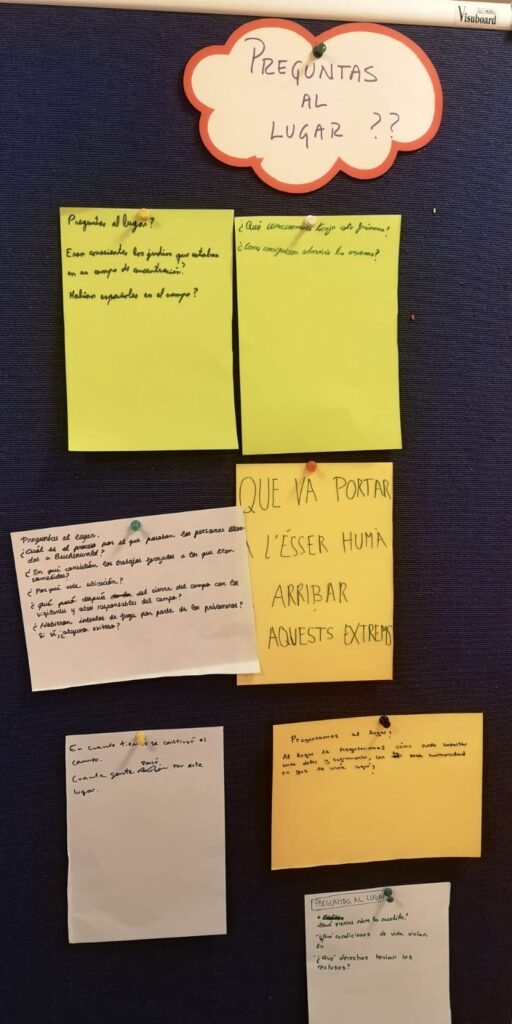 Visuboard
PREGUNTAS
AL
LUGAR ??
Preguntas al lugar?
Eran conscientes los judíos que estaban
en un campo de concentración?
Habían españoles en el campo?
¿Qué consecuencias trajo este fenómeno?
¿Como consiguieron
QUE VA PORTAR
A L'ÉSSER HUMÀ
ARRIBAR
AQUESTS EXTREMS
Preguntas al lugar.
¿Cuál es el proceso por el que pasaban las personas
a Buchenwald?
¿En qué consistían los trabajos forzados a los que eran
sometidos?
¿Por qué esta ubicación?
¿qué pasó después del cierre del campo con los
vigilantes y otros responsables del campo?
¿Habieron intentos de fuga por parte de los prisioneros?
Si sí ¿alguno exitoso?
En cuanto se construyó el
campo.
Cuanta gente pasó por este
lugar.
Preguntamos al lugar?
Al lugar le preguntaríamos cómo pudo soportar
tanto dolor y sufrimiento, con la humanidad
en que se vivía aquí?
PREGUNTAS AL LUGAR
¿Qué piensas sobre lo sucedido?
¿Qué condiciones de vida vivían
¿Qué derechos tenían los
reclusos?